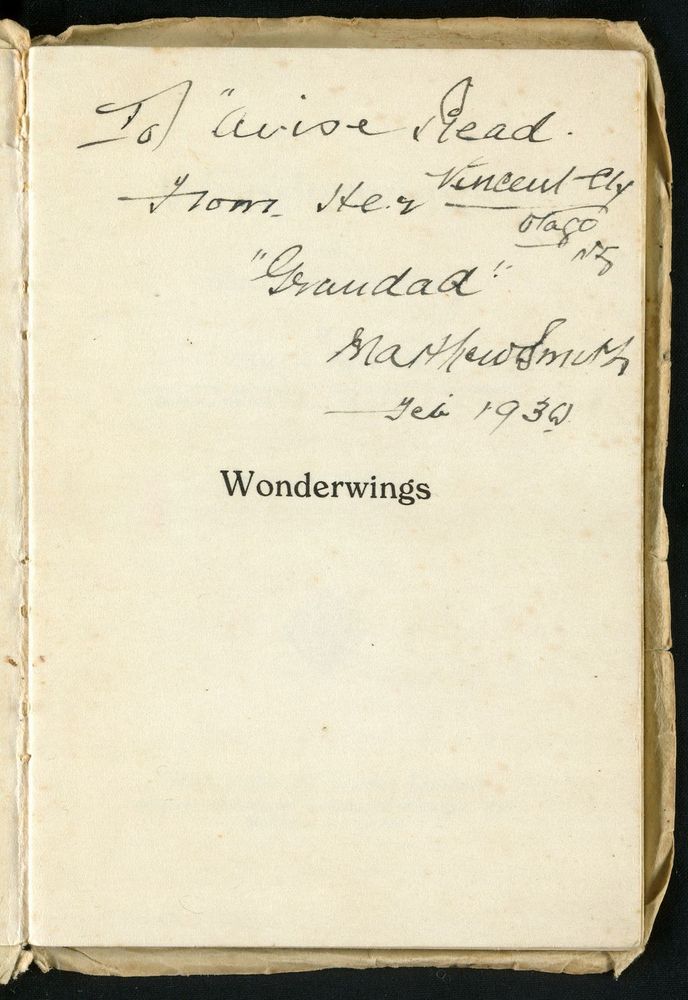 To "Avise Read.
From Her
Vincent Cty
Otago
NZ
"Grandad"
Mathew Smith
Feb 1930
Wonderwings